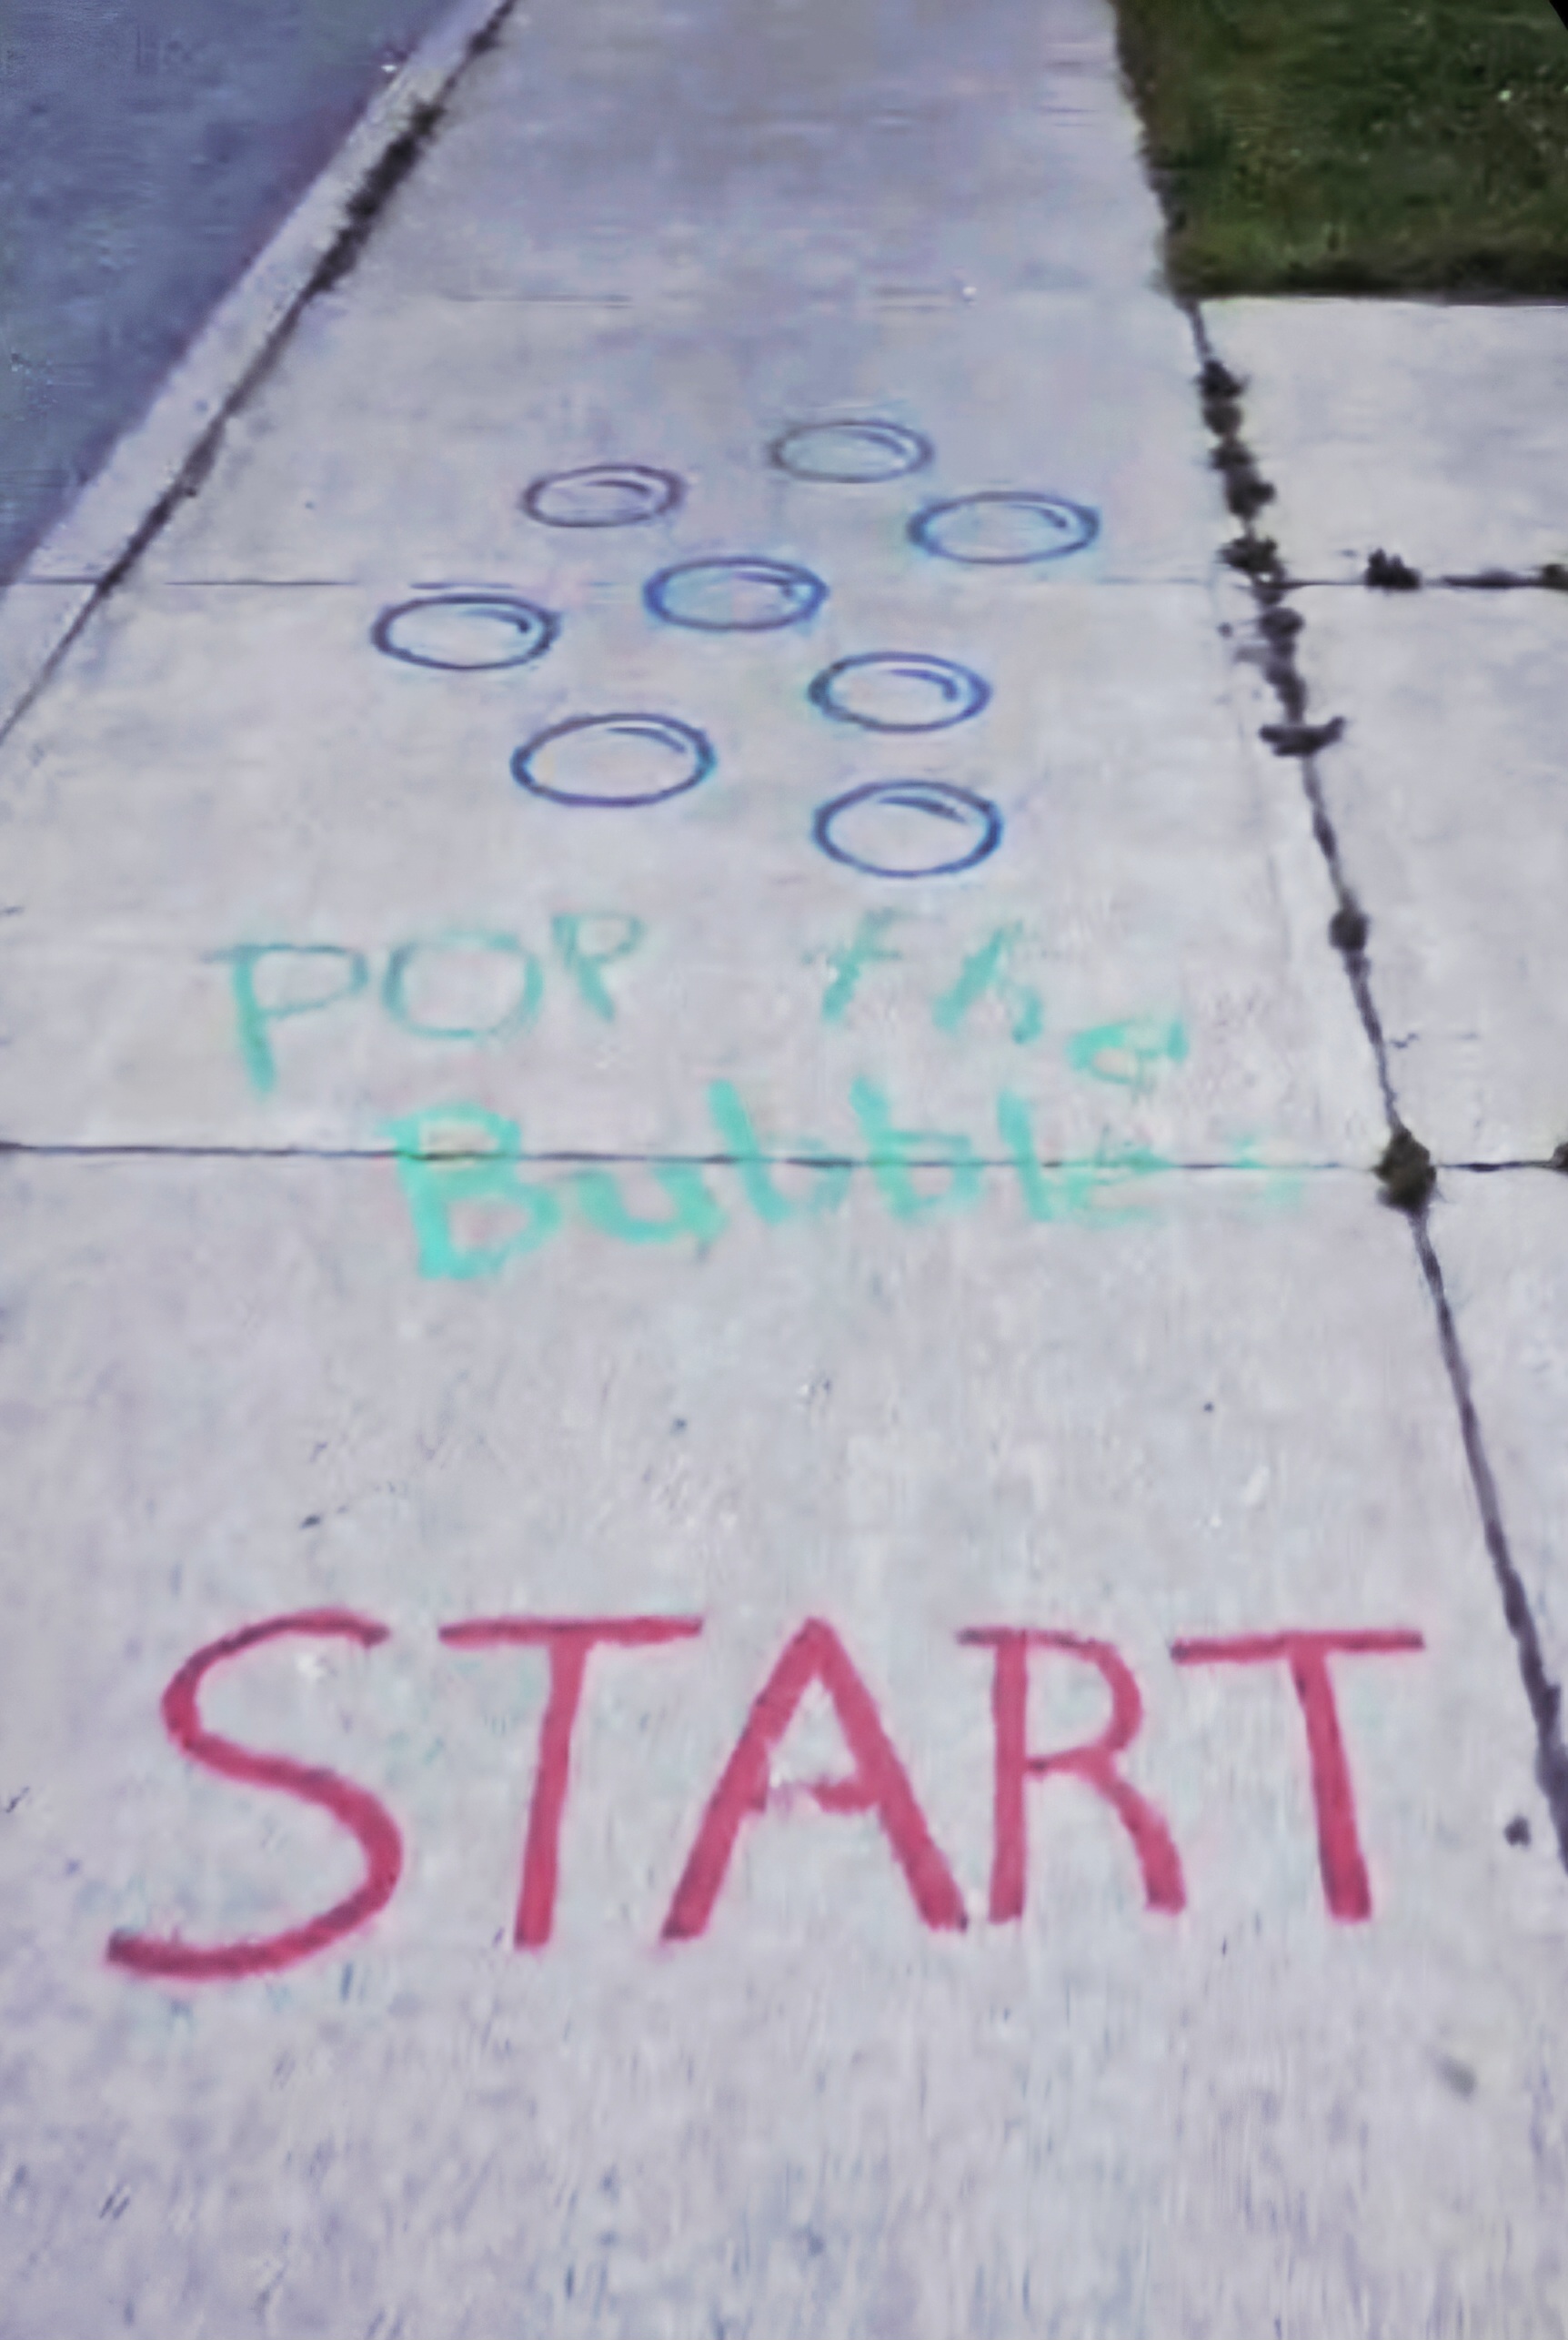 POP the
Bubbles
START